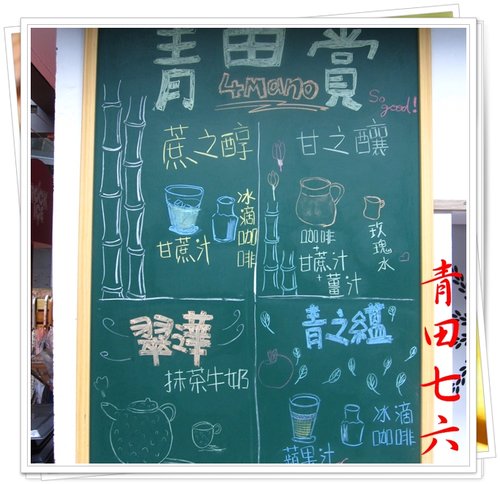 青田賞
4mano
So good!
蔗之醇
甘之釀
冰滴咖啡
甘蔗汁
咖啡
+
甘蔗汁
+
薑汁
玫瑰水
翠之華
抹茶牛奶
青之蘊
冰滴咖啡
蘋果汁
青田七六